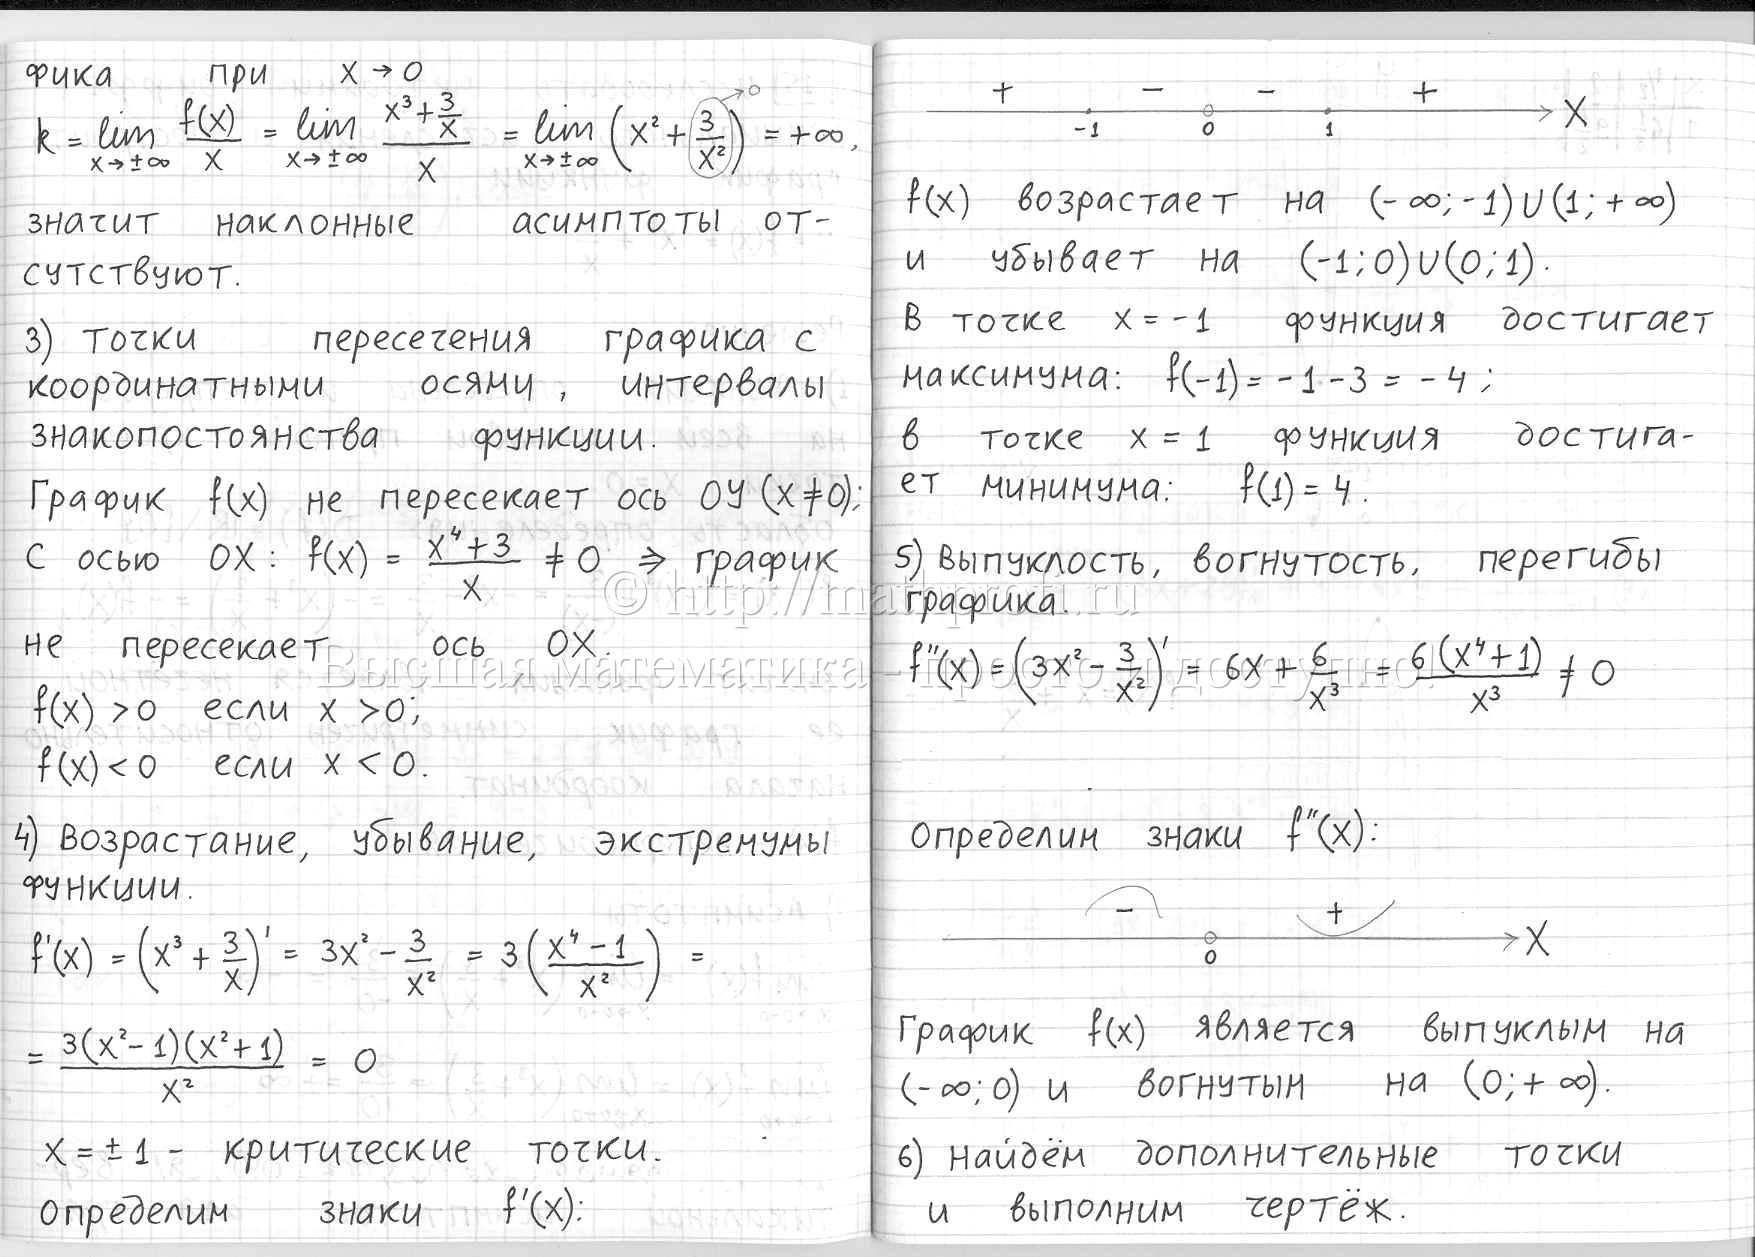 фика при x → 0
k = lim x→±∞ f(x)/x = lim x→±∞ (x³ + 3/x)/x = lim x→±∞ (x² + 3/x²) = +∞, →0
значит наклонные асимптоты от-
сутствуют.
3) Точки пересечения графика с
координатными осями, интервалы
знакопостоянства функции.
График f(x) не пересекает ось OY (x ≠ 0);
С осью OX: f(x) = (x⁴ + 3)/x ≠ 0 ⇒ график
не пересекает ось OX.
f(x) > 0 если x > 0;
f(x) < 0 если x < 0.
4) Возрастание, убывание, экстремумы
функции.
f'(x) = (x³ + 3/x)' = 3x² - 3/x² = 3((x⁴ - 1)/x²) =
= 3(x² - 1)(x² + 1)/x² = 0
x = ±1 - критические точки.
Определим знаки f'(x):
+ - - + X
-1 0 1
f(x) возрастает на (-∞; -1) U (1; +∞)
и убывает на (-1; 0) U (0; 1).
В точке x = -1 функция достигает
максимума: f(-1) = -1 - 3 = -4;
в точке x = 1 функция достига-
ет минимума: f(1) = 4.
5) Выпуклость, вогнутость, перегибы
графика.
f''(x) = (3x² - 3/x²)' = 6x + 6/x³ = 6(x⁴ + 1)/x³ ≠ 0
Определим знаки f''(x):
- + X
0
График f(x) является выпуклым на
(-∞; 0) и вогнутым на (0; +∞).
6) Найдём дополнительные точки
и выполним чертёж.
© http://mathprofi.ru
Высшая математика - просто и доступно!